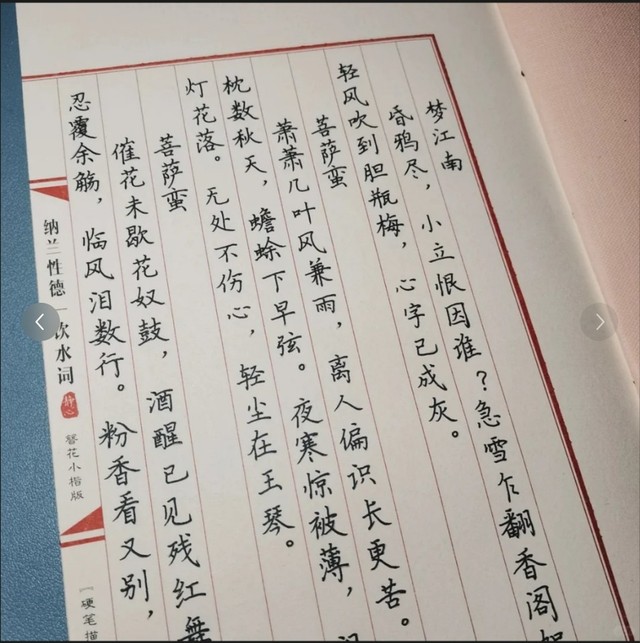 梦江南
昏鸦尽，小立恨因谁？急雪乍翻香阁
轻风吹到胆瓶梅，心字已成灰。
菩萨蛮
萧萧几叶风兼雨，离人偏识长更苦。
枕数秋天，蟾蜍下早弦。夜寒惊被薄，
灯花落。无处不伤心，轻尘在玉琴。
菩萨蛮
催花未歇花奴鼓，酒醒已见残红舞
忍覆余觞，临风泪数行。粉香看又别，
纳兰性德｜饮水词
静心
簪花小楷版
[硬笔描